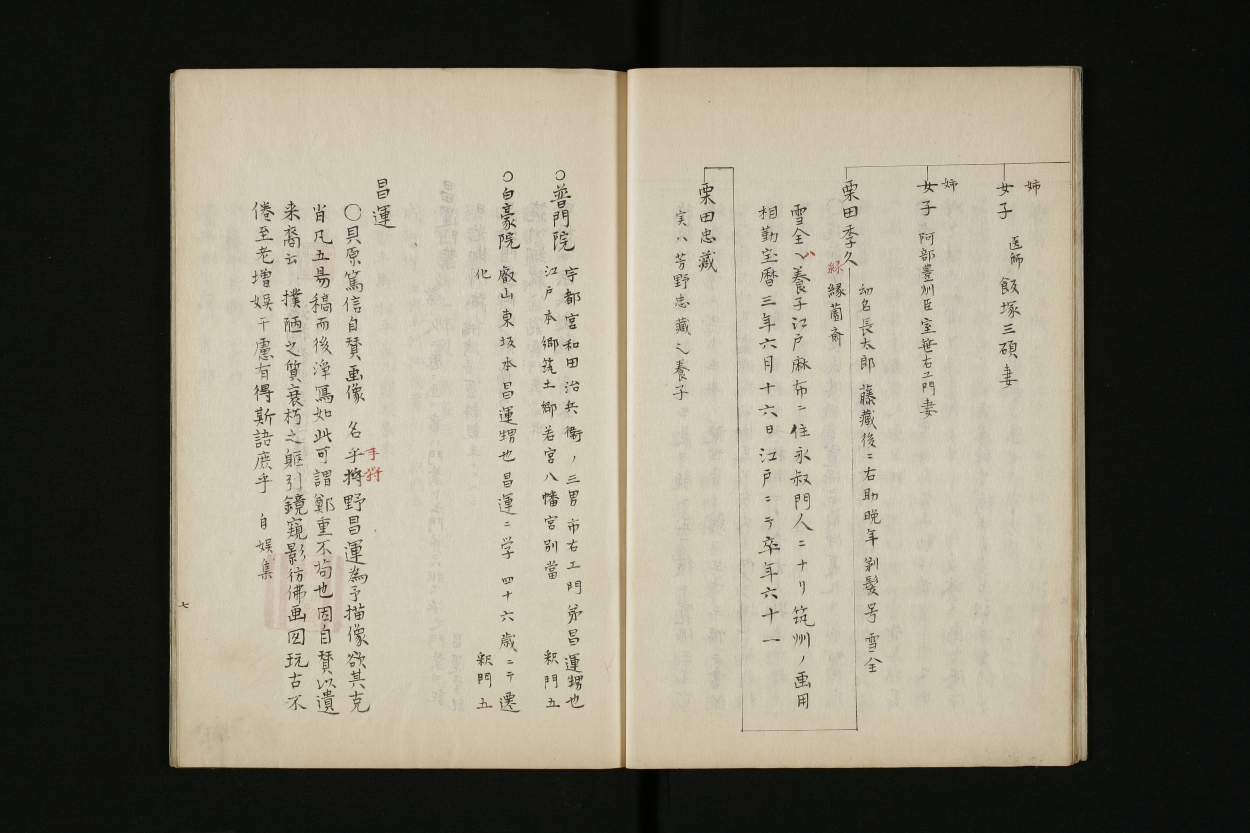 姉
女子 医師 飯塚三碩妻
姉
女子 阿部豊州臣 室笹右エ門妻
栗田季久 幼名長太郎 藤蔵後ニ右助晩年剃髪号雪全
緑
縁薗斎
雪全ハ養子江戸麻布ニ住永叔門人ニナリ筑州ノ画用
相勤宝暦三年六月十六日江戸ニテ卒年六十一
栗田忠蔵
実ハ芳野忠蔵之養子
○普門院 宇都宮和田治兵衛ノ三男市右エ門弟昌運甥也
江戸本郷筑土郷若宮八幡宮別當 釈門五
○白豪院 叡山東坂本昌運甥也昌運ニ学 四十六歳ニテ遷
化 釈門五
昌運
○貝原篤信自賛画像 名乎将野昌運為予描像欲其克
手狩
肖凡五易稿而後淨寫如此可謂鄭重不苟也因自賛以遺
来裔云 撲陋之質衰朽之軀引鏡窺影彷佛画図玩古不
倦至老増娯千慮有得斯語庶乎 自娯集
七